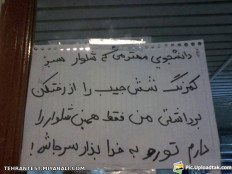 دانشجوی محترمی که شلوار سبز
کمرنگ شش جیب را از رختکن
برداشتی من فقط همین شلوار را
دارم تورو به خدا بزار سرجاش!
TEHRANTEST.MIYANALI.COM
Pic.Uploadtak.com